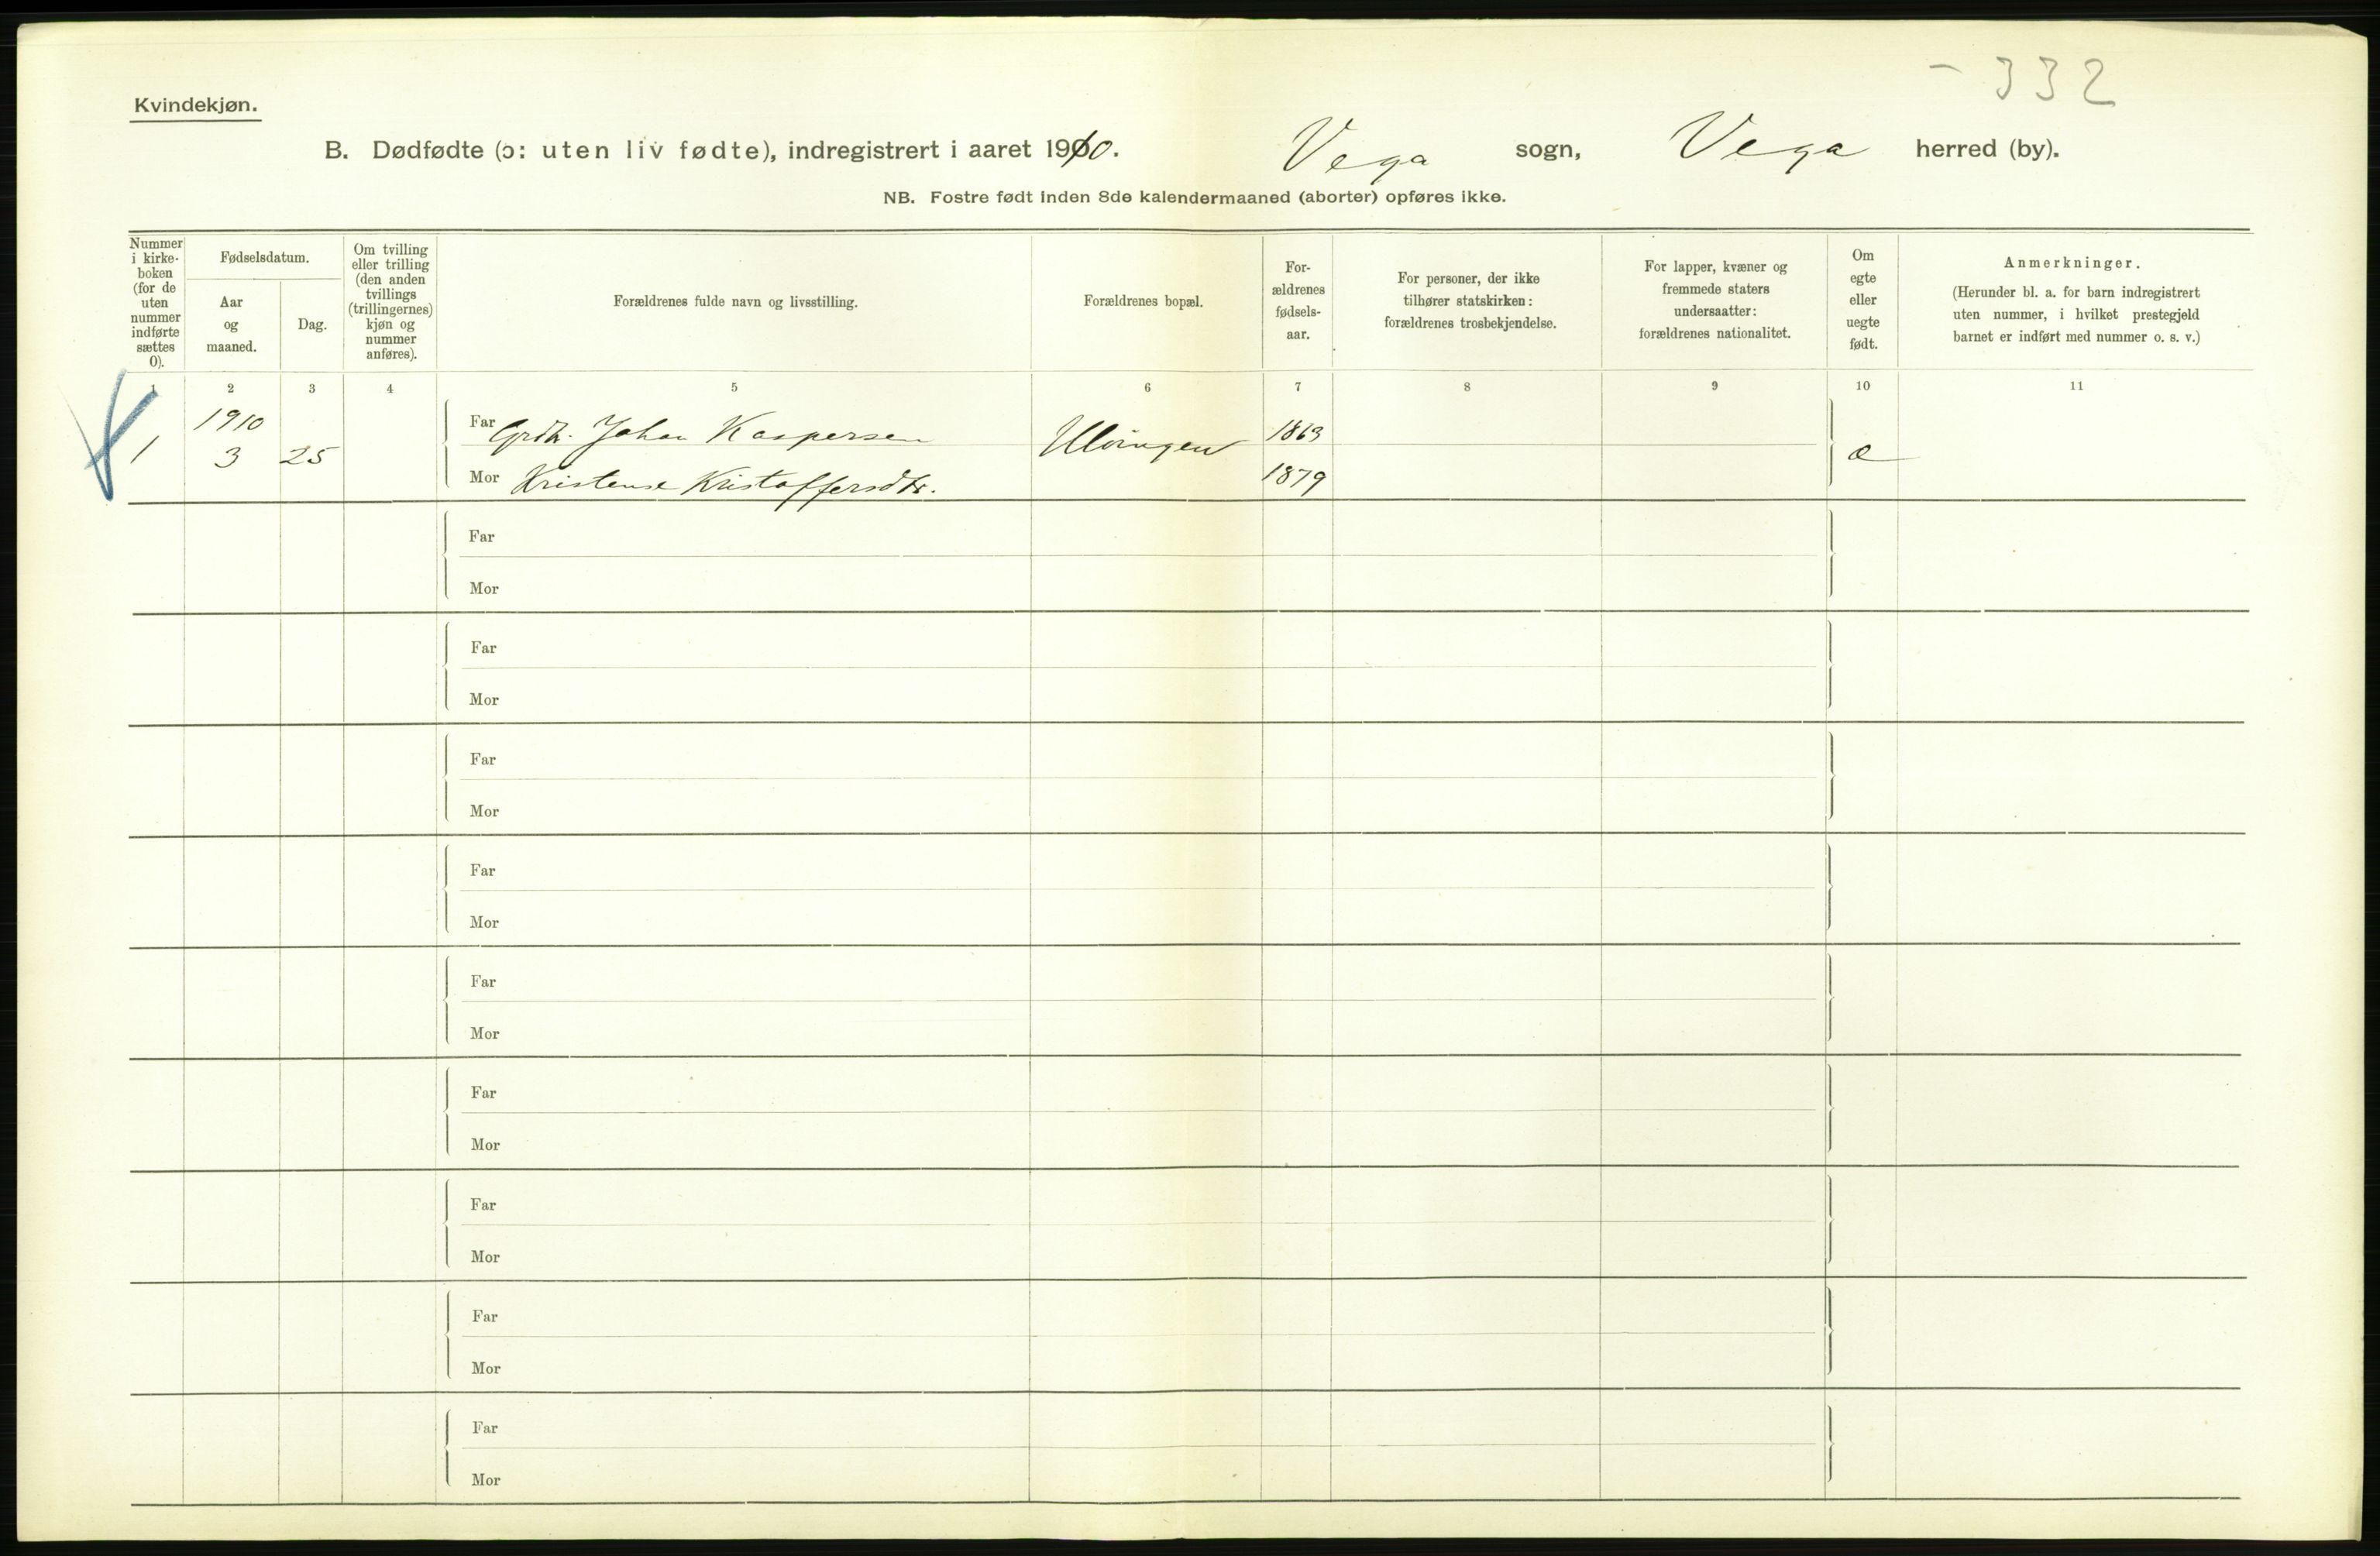 - 332
Kvindekjøn.
B. Dødfødte (ɔ: uten liv fødte), indregistrert i aaret 1910. Vega sogn, Vega herred (by).
NB. Fostre født inden 8de kalendermaaned (aborter) opføres ikke.
Nummer i kirke-boken (for de uten nummer indførte sættes 0).
Fødselsdatum.
Aar og maaned.
Dag.
Om tvilling eller trilling (den anden tvillings (trillingernes) kjøn og nummer anføres).
Forældrenes fulde navn og livsstilling.
Forældrenes bopæl.
For-ældrenes fødsels-aar.
For personer, der ikke tilhører statskirken: forældrenes trosbekjendelse.
For lapper, kvæner og fremmede staters undersaatter: forældrenes nationalitet.
Om egte eller uegte født.
Anmerkninger.
(Herunder bl. a. for barn indregistrert uten nummer, i hvilket prestegjeld barnet er indført med nummer o. s. v.)
1 2 3 4 5 6 7 8 9 10 11
1910
Far Grdb. Johan Kaspersen 1863
1 3 25 Uløingen æ
Mor Kristense Kristoffersdtr. 1879
Far
Mor
Far
Mor
Far
Mor
Far
Mor
Far
Mor
Far
Mor
Far
Mor
Far
Mor
Far
Mor